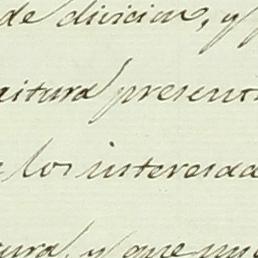 de divicion, y
aitura presente
los interesda
ura, y que